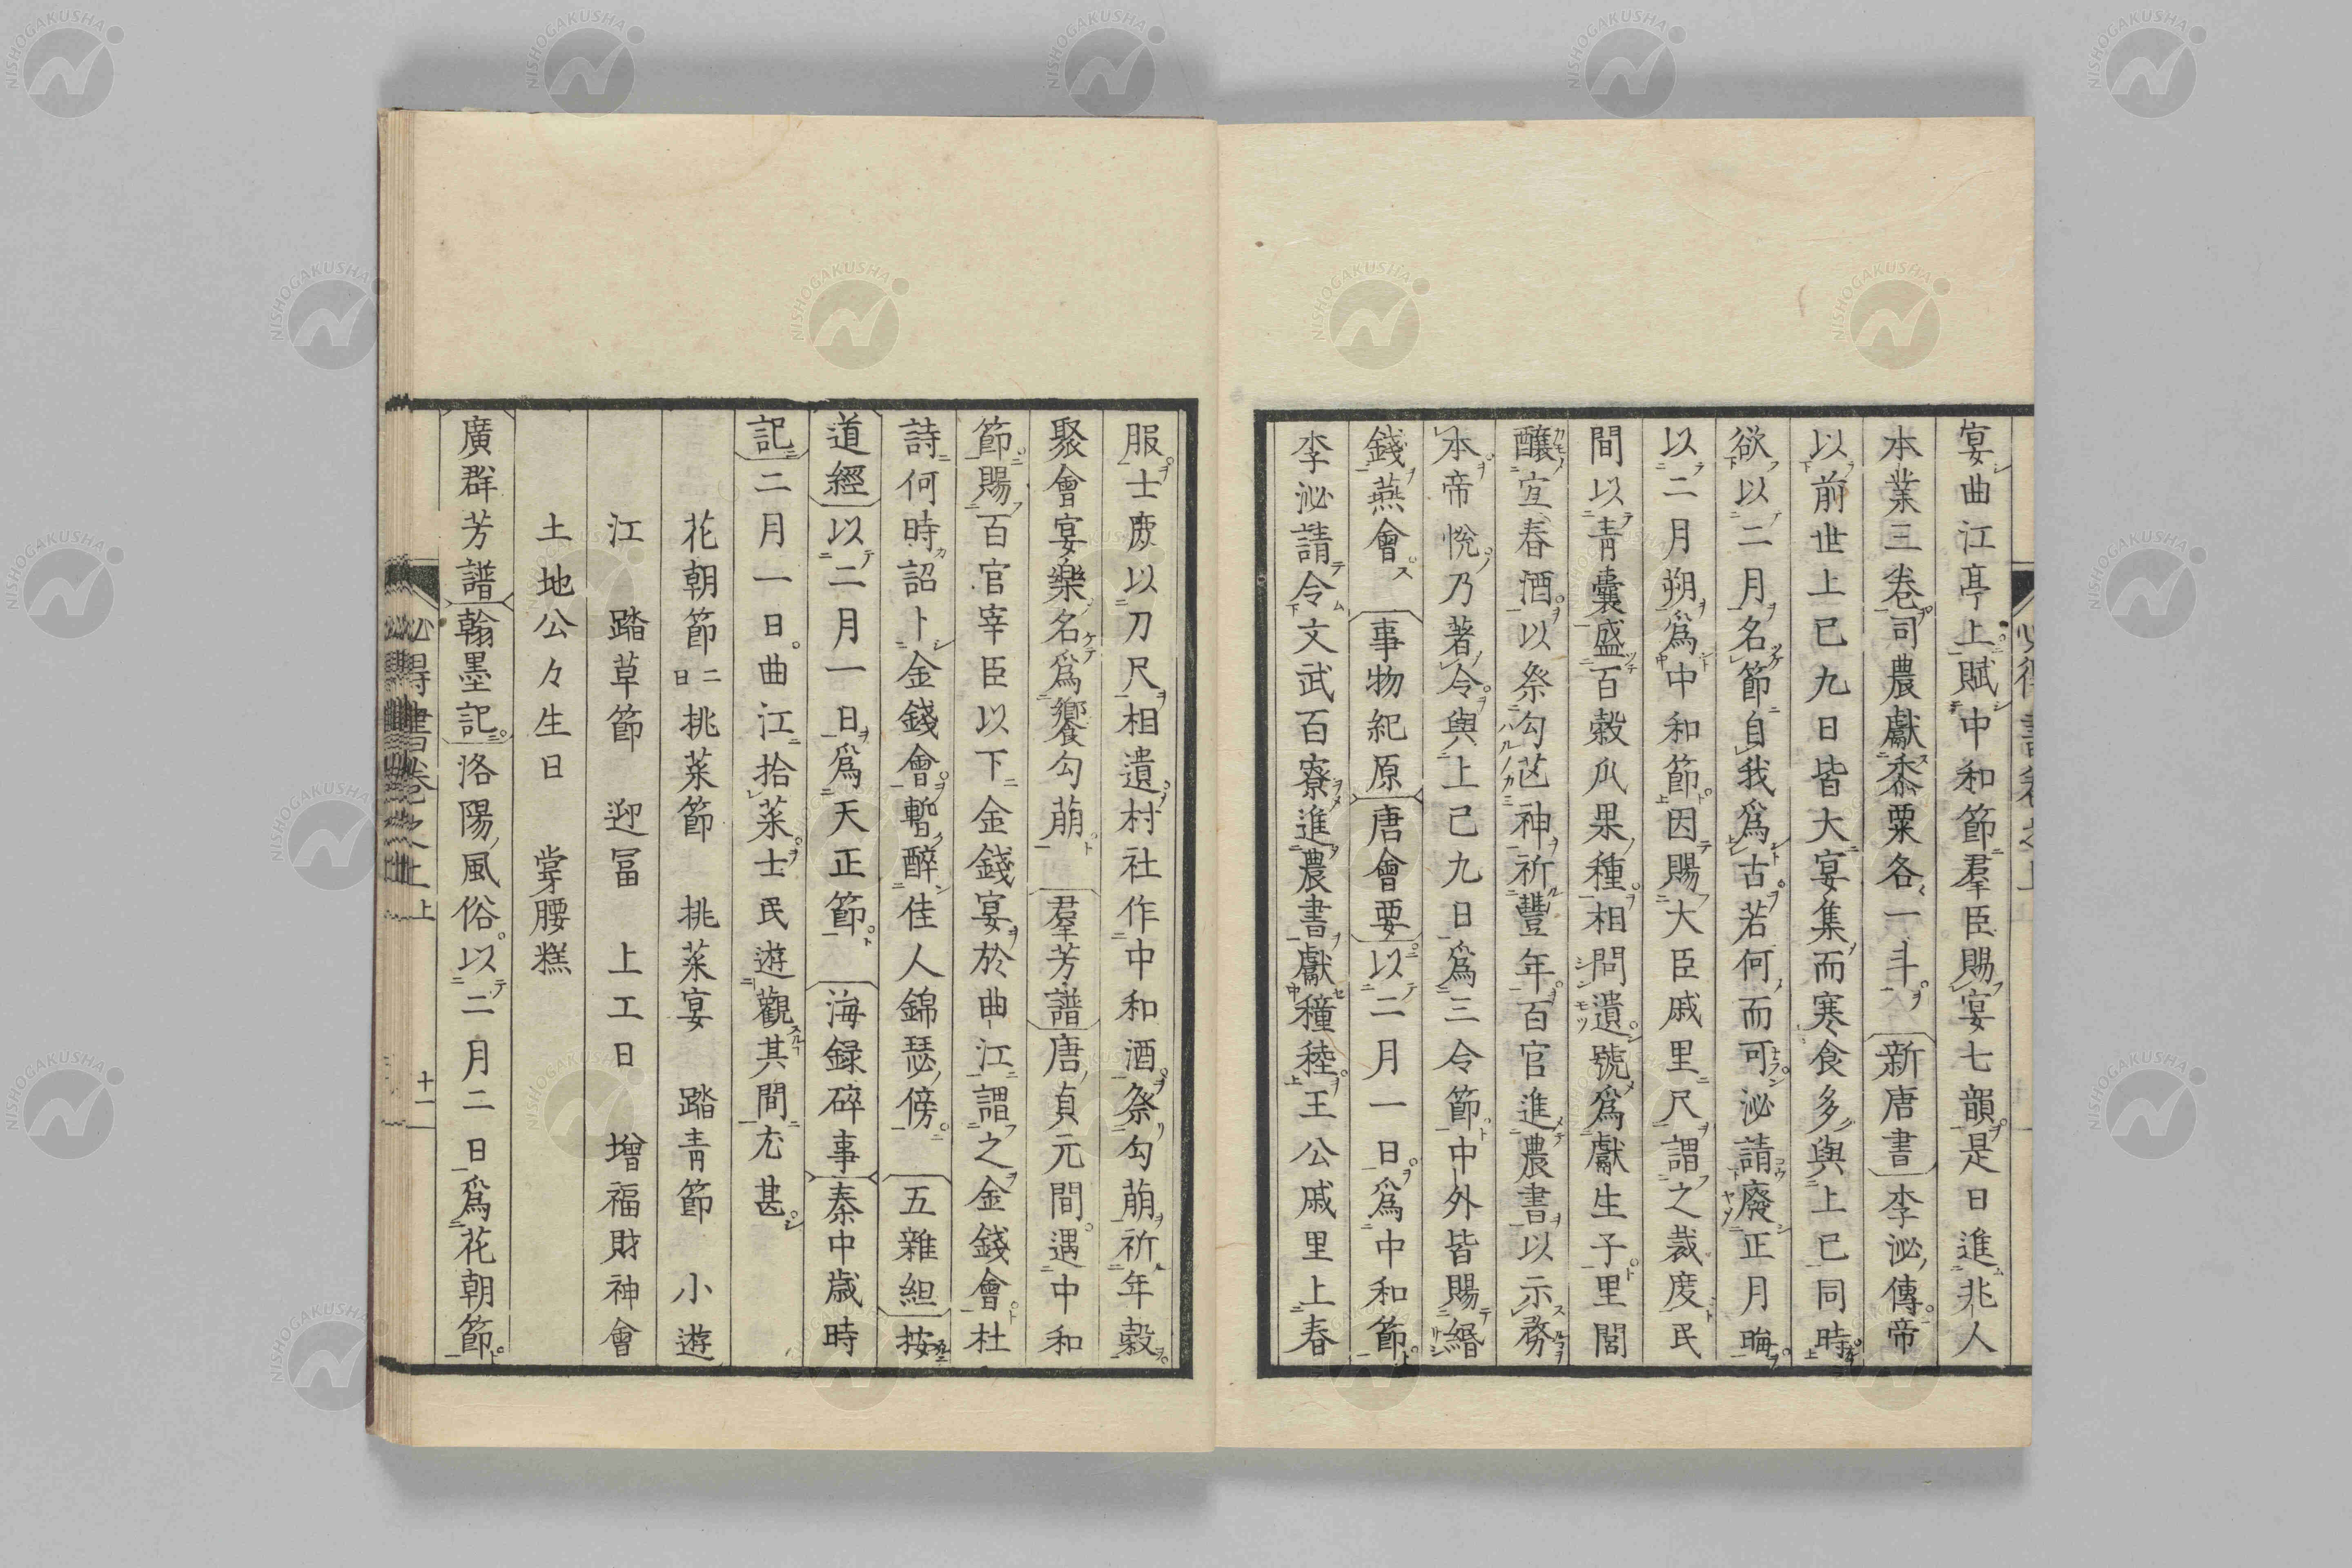 宴曲江亭上賦中和節羣臣賜宴七韻是日進兆人
本業三卷司農獻黍粟各一斗新唐書李泌傳帝
以前世上巳九日皆大宴集而寒食多與上巳同時
欲以二月名節自我爲古若何而可泌請廢正月晦
以二月朔爲中和節因賜大臣戚里尺謂之裁度民
間以青囊盛百穀瓜果種相問遺號爲獻生子里閭
釀宜春酒以祭勾芒神祈豐年百官進農書以示務
本帝悅乃著令與上巳九日爲三令節中外皆賜緡
錢燕會事物紀原唐會要以二月一日爲中和節
李泌請令文武百寮進農書獻穜稑王公戚里上春
服士庶以刀尺相遺村社作中和酒祭勾萠祈年穀
聚會宴樂名爲饗勾萠羣芳譜唐貞元間遇中和
節賜百官宰臣以下金錢宴於曲江謂之金錢會杜
詩何時詔卜金錢會暫醉佳人錦瑟傍五雜組按
道經以二月一日爲天正節海録碎事秦中歲時
記二月一日曲江拾菜士民遊觀其間尤甚
花朝節二日挑菜節 挑菜宴 踏青節 小遊
江 踏草節 迎冨 上工日 增福財神會
土地公々生日 掌腰糕
廣群芳譜翰墨記洛陽風俗以二月二日爲花朝節
必得書卷之上 上 十一
NISHOGAKUSHA